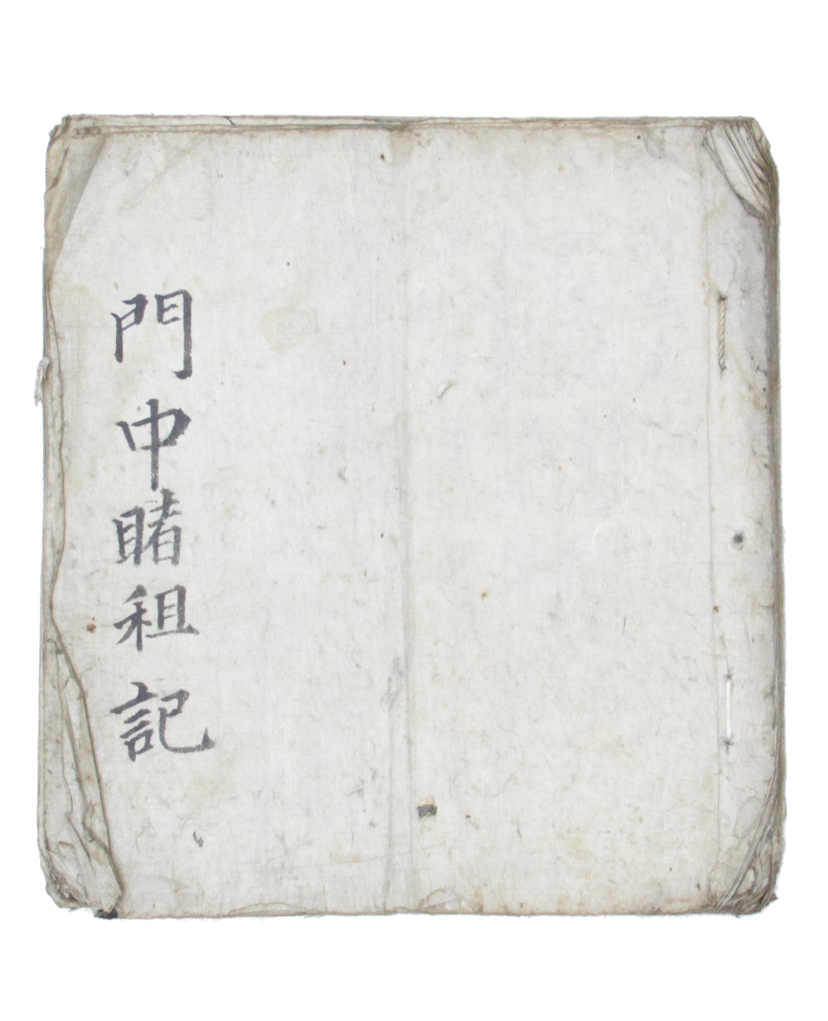 門中睹租記